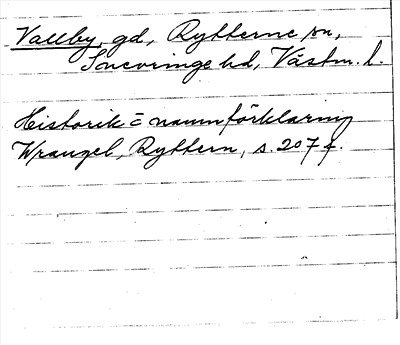 Vallby, gd, Rytterne sn,
Snevringe hd, Västm. l.
Historik o namnförklaring
Wrangel, Ryttern, s. 207 f.